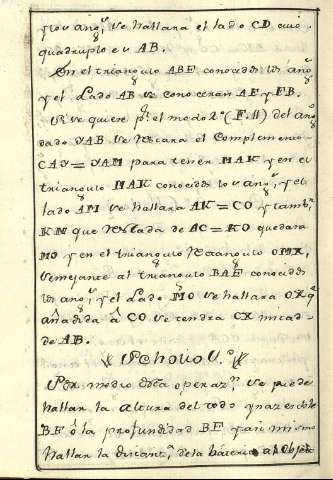 y los ang.s se hallara el lado CD cuio
quadruplo es AB.
En el triangulo ABE conocidos los ang.s
y el Lado AB se conoceran AE y EB.
Si se quiere p.r el modo 2.º (F. ) del ang.
dado JAB se restara el Complemento
CAJ = JAM para tener MAK y en el
triangulo MAK conocidos los ang.s y el
lado AM se hallara AK = CO y tamb.n
KM que restada de AC = KO quedara
MO y en el triangulo Rectangulo OMX,
semejante al triangulo BAE conocidos
los ang.s y el Lado MO se hallara OX q.e
añadida â CO se tendra CX mitad
de AB.
Scholio V.º
Por medio desta operaz.n se puede
hallar la altura del todo ynazesible
BE ô la profundidad BE y asi mismo
hallar la distanc.a de la bateria al objeto